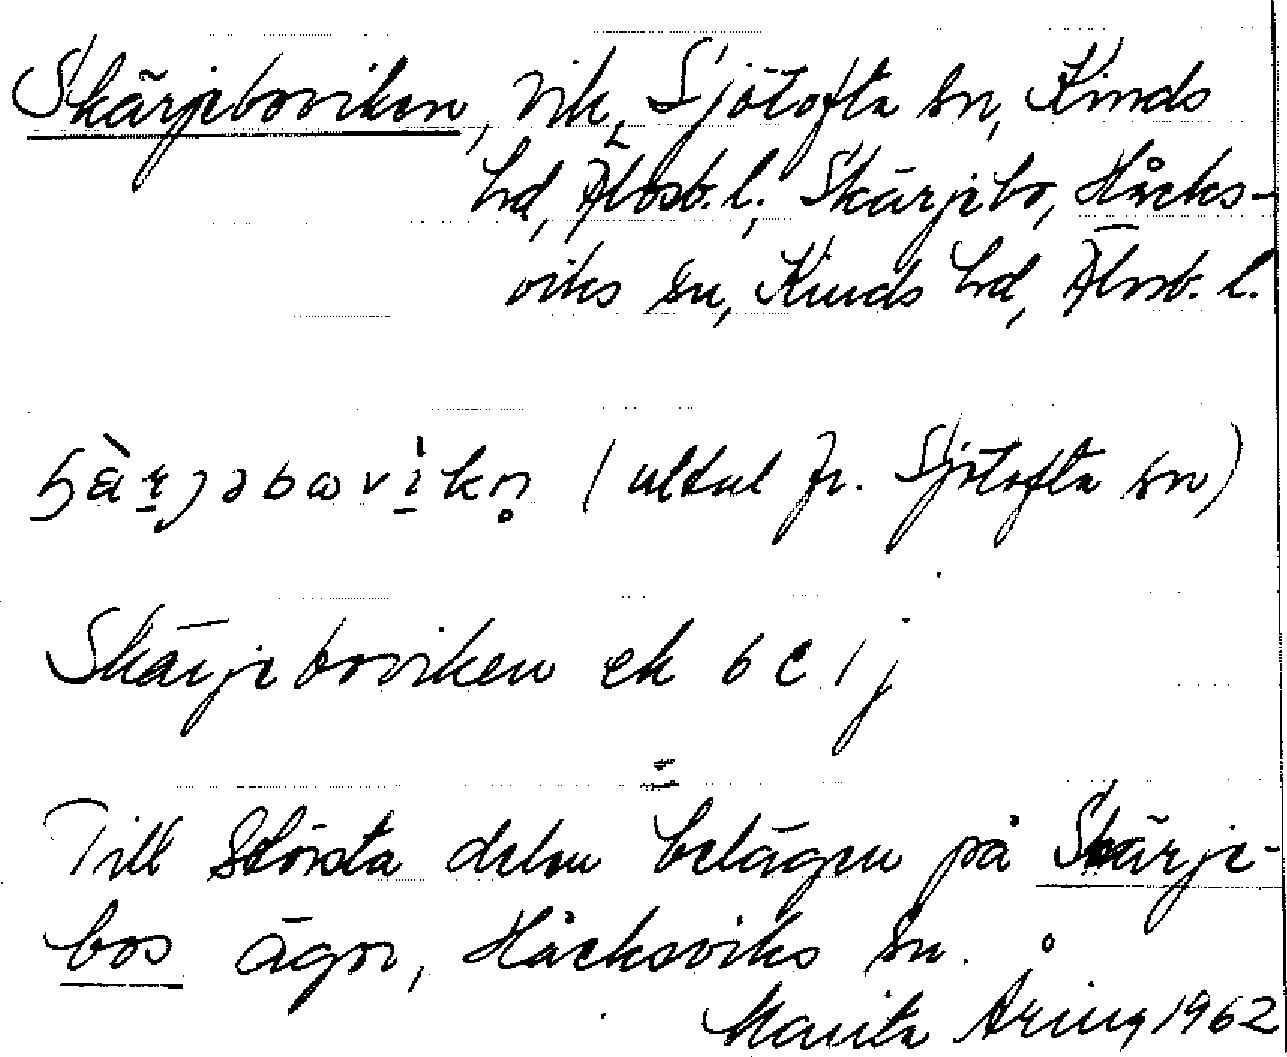 Skärjeboviken, vik, Sjötofta sn, Kinds
hd, Älvsb. l.; Skärjebo, Håcks-
viks sn, Kinds hd, Älvsb. l.
(uttal fr. Sjötofta sn)
Skärjeboviken ek 6 C 1 j
Till största delen belägen på Skärje-
bos ägor, Håcksviks sn.
Marita Åring 1962